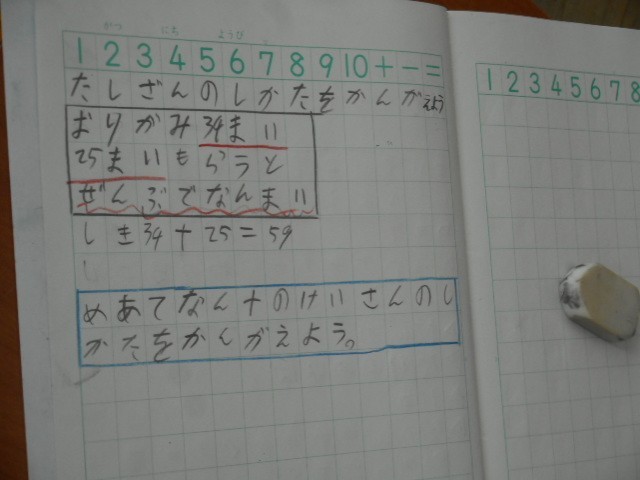 がつ にち ようび
1 2 3 4 5 6 7 8 9 10 + - =
たしざんのしかたをかんがえよう
おりがみ34まい
25まいもらうと
ぜんぶでなんまい
しき34+25=59
めあてなん十のけいさんのし
かたをかんがえよう。
1 2 3 4 5 6 7 8